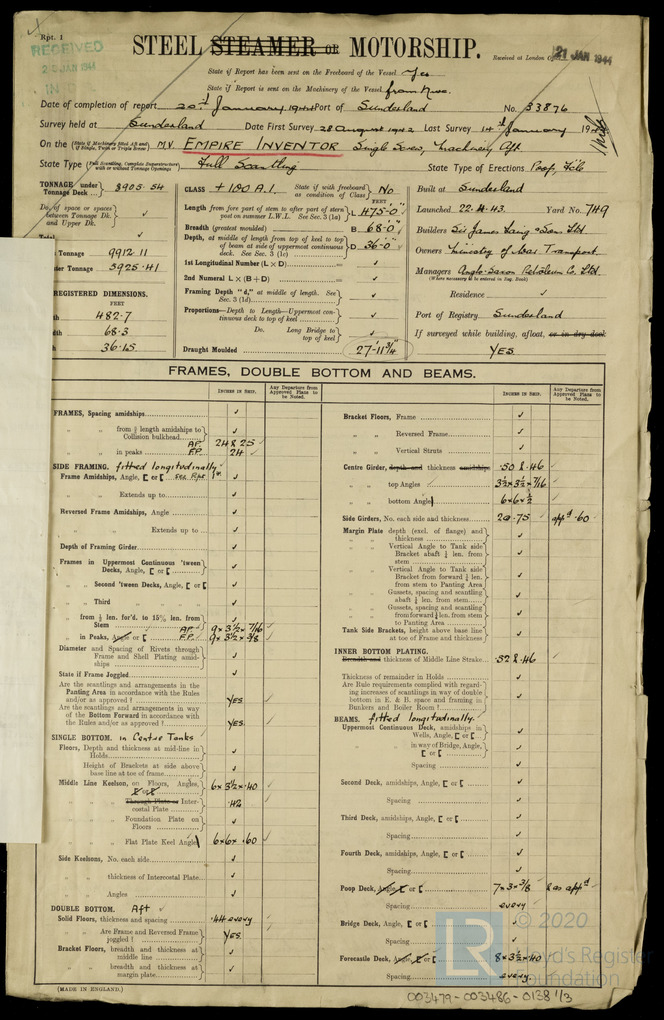 Rpt. 1
RECEIVED
JAN 1944
STEEL STEAMER OR MOTORSHIP.
Received at London
21 JAN 1944
State if Report has been sent on the Freeboard of the Vessel Yes
State if Report is sent on the Machinery of the Vessel from
Date of completion of report 20th January 1944 Port of Sunderland No. 33876
Survey held at Sunderland Date First Survey 28 August 1942 Last Survey 14th January 19
On the MV. EMPIRE INVENTOR Single Screw, Machinery Aft
State Type Full Scantling State Type of Erections Poop, F'cle
TONNAGE under Tonnage Deck 8905.54
Do. of space or spaces between Tonnage Dk. and Upper Dk. ✓
Total
Tonnage 9912.11
Tonnage 5925.41
REGISTERED DIMENSIONS.
FEET
482.7
68.3
36.15
CLASS + 100 A.1. State if with freeboard as condition of Class No
FEET
Length from fore part of stem to after part of stern post on summer L.W.L. See Sec. 3 (1a) L 475'-0"
Breadth (greatest moulded) B 68'-0"
Depth, at middle of length from top of keel to top of beam at side of uppermost continuous deck. See Sec. 3 (1c) D 36'-0"
1st Longitudinal Number (L × D) ✓
2nd Numeral L × (B + D) ✓
Framing Depth "d," at middle of length. See Sec. 3 (1d) ✓
Proportions—Depth to Length—Uppermost continuous deck to top of keel ✓
Do. Long Bridge to top of keel ✓
Draught Moulded 27'-11¾"
Built at Sunderland
Launched 22.4.43. Yard No. 749
Builders Sir James Laing & Sons Ltd
Owners Ministry of War Transport
Managers Anglo-Saxon Petroleum Co. Ltd
(Where necessary to be entered in Reg. Book)
Residence ✓
Port of Registry Sunderland
If surveyed while building, afloat, or in dry dock
YES.
FRAMES, DOUBLE BOTTOM AND BEAMS.
INCHES IN SHIP.
Any Departure from Approved Plans to be Noted.
FRAMES, Spacing amidships ✓
" " from ⅗ length amidships to Collision bulkhead ✓
" " in peaks A.P. 24 & 25 ✓
F.P. 24 ✓
SIDE FRAMING. fitted longitudinally
Frame Amidships, Angle, [ or [ See Rpt
" " Extends up to ✓
Reversed Frame Amidships, Angle ✓
" " Extends up to ✓
Depth of Framing Girder ✓
Frames in Uppermost Continuous 'tween Decks, Angle, [ or [ ✓
" " Second 'tween Decks, Angle, [ or [ ✓
" " Third " " " " ✓
" " from ⅗ len. for'd. to 15% len. from Stem ✓
A.P. 9 × 3½ × 7/16 ✓
" " in Peaks, Angle or [ F.P. 9 × 3½ × 3/8 ✓
Diameter and Spacing of Rivets through Frame and Shell Plating amidships ✓
State if Frame Joggled ✓
Are the scantlings and arrangements in the Panting Area in accordance with the Rules and/or as approved? YES ✓
Are the scantlings and arrangements in way of the Bottom Forward in accordance with the Rules and/or as approved? YES. ✓
SINGLE BOTTOM. in Centre Tanks
Floors, Depth and thickness at mid-line in Holds ✓
" Height of Brackets at side above base line at toe of frame ✓
Middle Line Keelson, on Floors, Angles, [ or [ 6 × 3½ × .40 ✓
" " Through Plate or Intercostal Plate .42 ✓
" " Foundation Plate on Floors ✓
" " Flat Plate Keel Angle 6 × 6 × .60 ✓
Side Keelsons, No. each side ✓
" " thickness of Intercostal Plate ✓
" " Angles ✓
DOUBLE BOTTOM. Aft ✓
Solid Floors, thickness and spacing .44 every ✓
" " Are Frame and Reversed Frame joggled? YES. ✓
Bracket Floors, breadth and thickness at middle line ✓
" " breadth and thickness at margin plate ✓
(MADE IN ENGLAND.)
INCHES IN SHIP.
Any Departure from Approved Plans to be Noted.
Bracket Floors, Frame ✓
" " Reversed Frame ✓
" " Vertical Struts ✓
Centre Girder, depth and thickness amidships .50 & .46 ✓
" " top Angles 3½ × 3½ × 7/16 ✓
" " bottom Angle 6 × 6 × ½ ✓
Side Girders, No. each side and thickness 2 @ .75 app'd .60
Margin Plate depth (excl. of flange) and thickness ✓
" " Vertical Angle to Tank side Bracket abaft ¼ len. from stem ✓
" " Vertical Angle to Tank side Bracket from forward ¼ len. from stem to Panting Area ✓
" " Gussets, spacing and scantling abaft ¼ len. from stem ✓
" " Gussets, spacing and scantling from forward ¼ len. from stem to Panting Area ✓
Tank Side Brackets, height above base line at toe of Frame and thickness ✓
INNER BOTTOM PLATING.
Breadth and thickness of Middle Line Strake .52 & .46 ✓
Thickness of remainder in Holds ✓
Are Rule requirements complied with regarding increases of scantlings in way of double bottom in E. & B. space and framing in Bunkers and Boiler Room? ✓
BEAMS. fitted longitudinally. ✓
Uppermost Continuous Deck, amidships in Wells, Angle, [ or [ ✓
" " in way of Bridge, Angle, [ or [ ✓
Spacing ✓
Second Deck, amidships, Angle, [ or [ ✓
Spacing ✓
Third Deck, amidships, Angle, [ or [ ✓
Spacing ✓
Fourth Deck, amidships, Angle, [ or [ ✓
Spacing ✓
Poop Deck, Angle, [ or [ 7 × 3 × 3/8 & as app'd ✓
Spacing every ✓
Bridge Deck, Angle, [ or [ ✓
Spacing ✓
Forecastle Deck, Angle, [ or [ 8 × 3½ × .40
Spacing every
© 2020
Lloyd's Register
Foundation
LR
003479-003486-0138 1/3